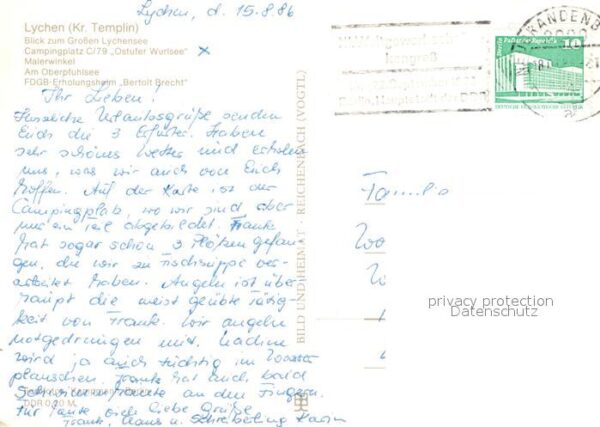 Lychen, d. 15.8.86
Lychen (Kr. Templin)
Blick zum Großen Lychensee
Campingplatz C/79 „Ostufer Wurlsee" x
Malerwinkel
Am Oberpfuhlsee
FDGB-Erholungsheim „Bertolt Brecht"
Ihr Lieben!
Herzliche Urlaubsgrüße senden
Euch die 3 Erfurter. Haben
sehr schönes Wetter und erholen
uns, was wir auch von Euch
hoffen. Auf der Karte ist der
Campingplatz, wo wir sind aber
nur ein Teil abgebildet. Frank
hat sogar schon 3 Plötzen gefan-
gen, die wir zu Fischsuppe ver-
arbeitet haben. Angeln ist über-
haupt die meist geübte Tätig-
keit von Frank. Wir angeln
notgedrungen mit.
wird ja auch tüchtig im Wasser
planschen. Frank hat auch bald
an den Fingern.
Für heute Euch liebe Grüße
Frank, Hans u. Schreiberling Karin
DDR 0,20 M
BILD UND HEIMAT · REICHENBACH (VOGTL)
Berlin, Palast der Republik
10
DEUTSCHE DEMOKRATISCHE REPUBLIK
BRANDENBURG
kongreß
DDR
Familie
privacy protection
Datenschutz